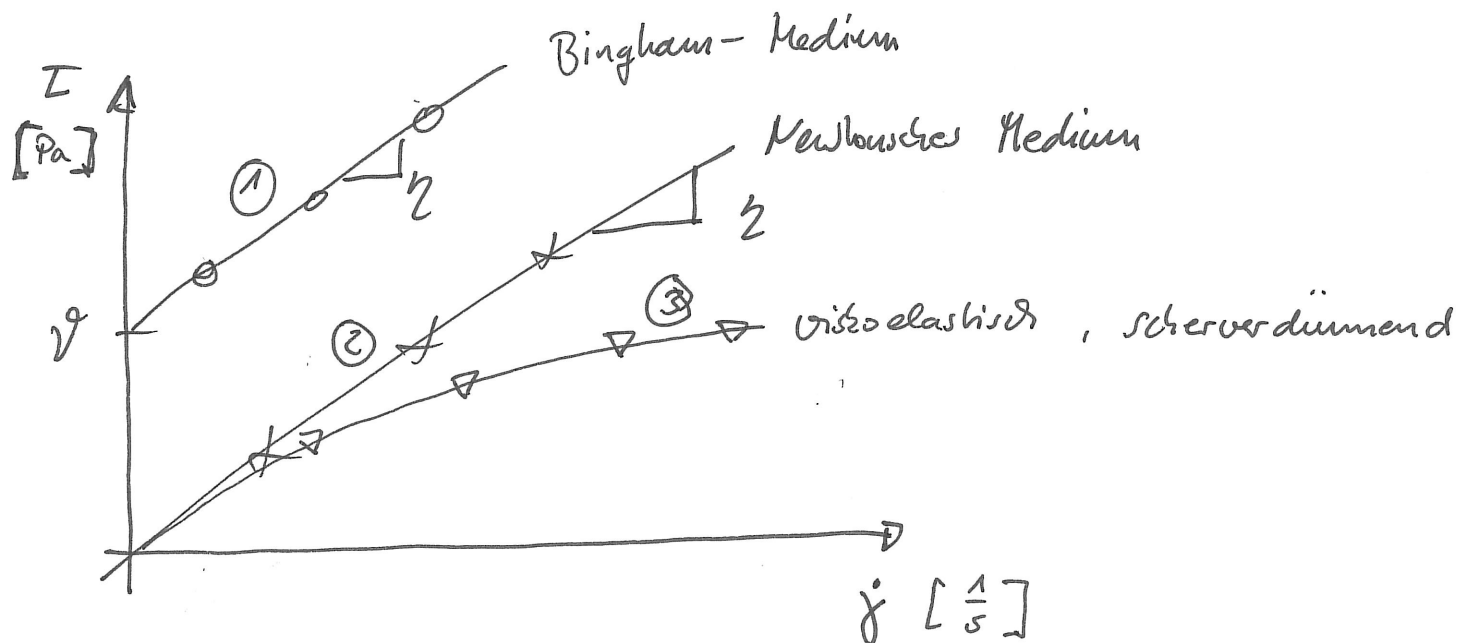 Bingham-Medium
τ
[Pa]
Newtonsches Medium
①
η
η
③
ϑ
②
viskoelastisch, scherverdünnend
γ̇ [1/s]